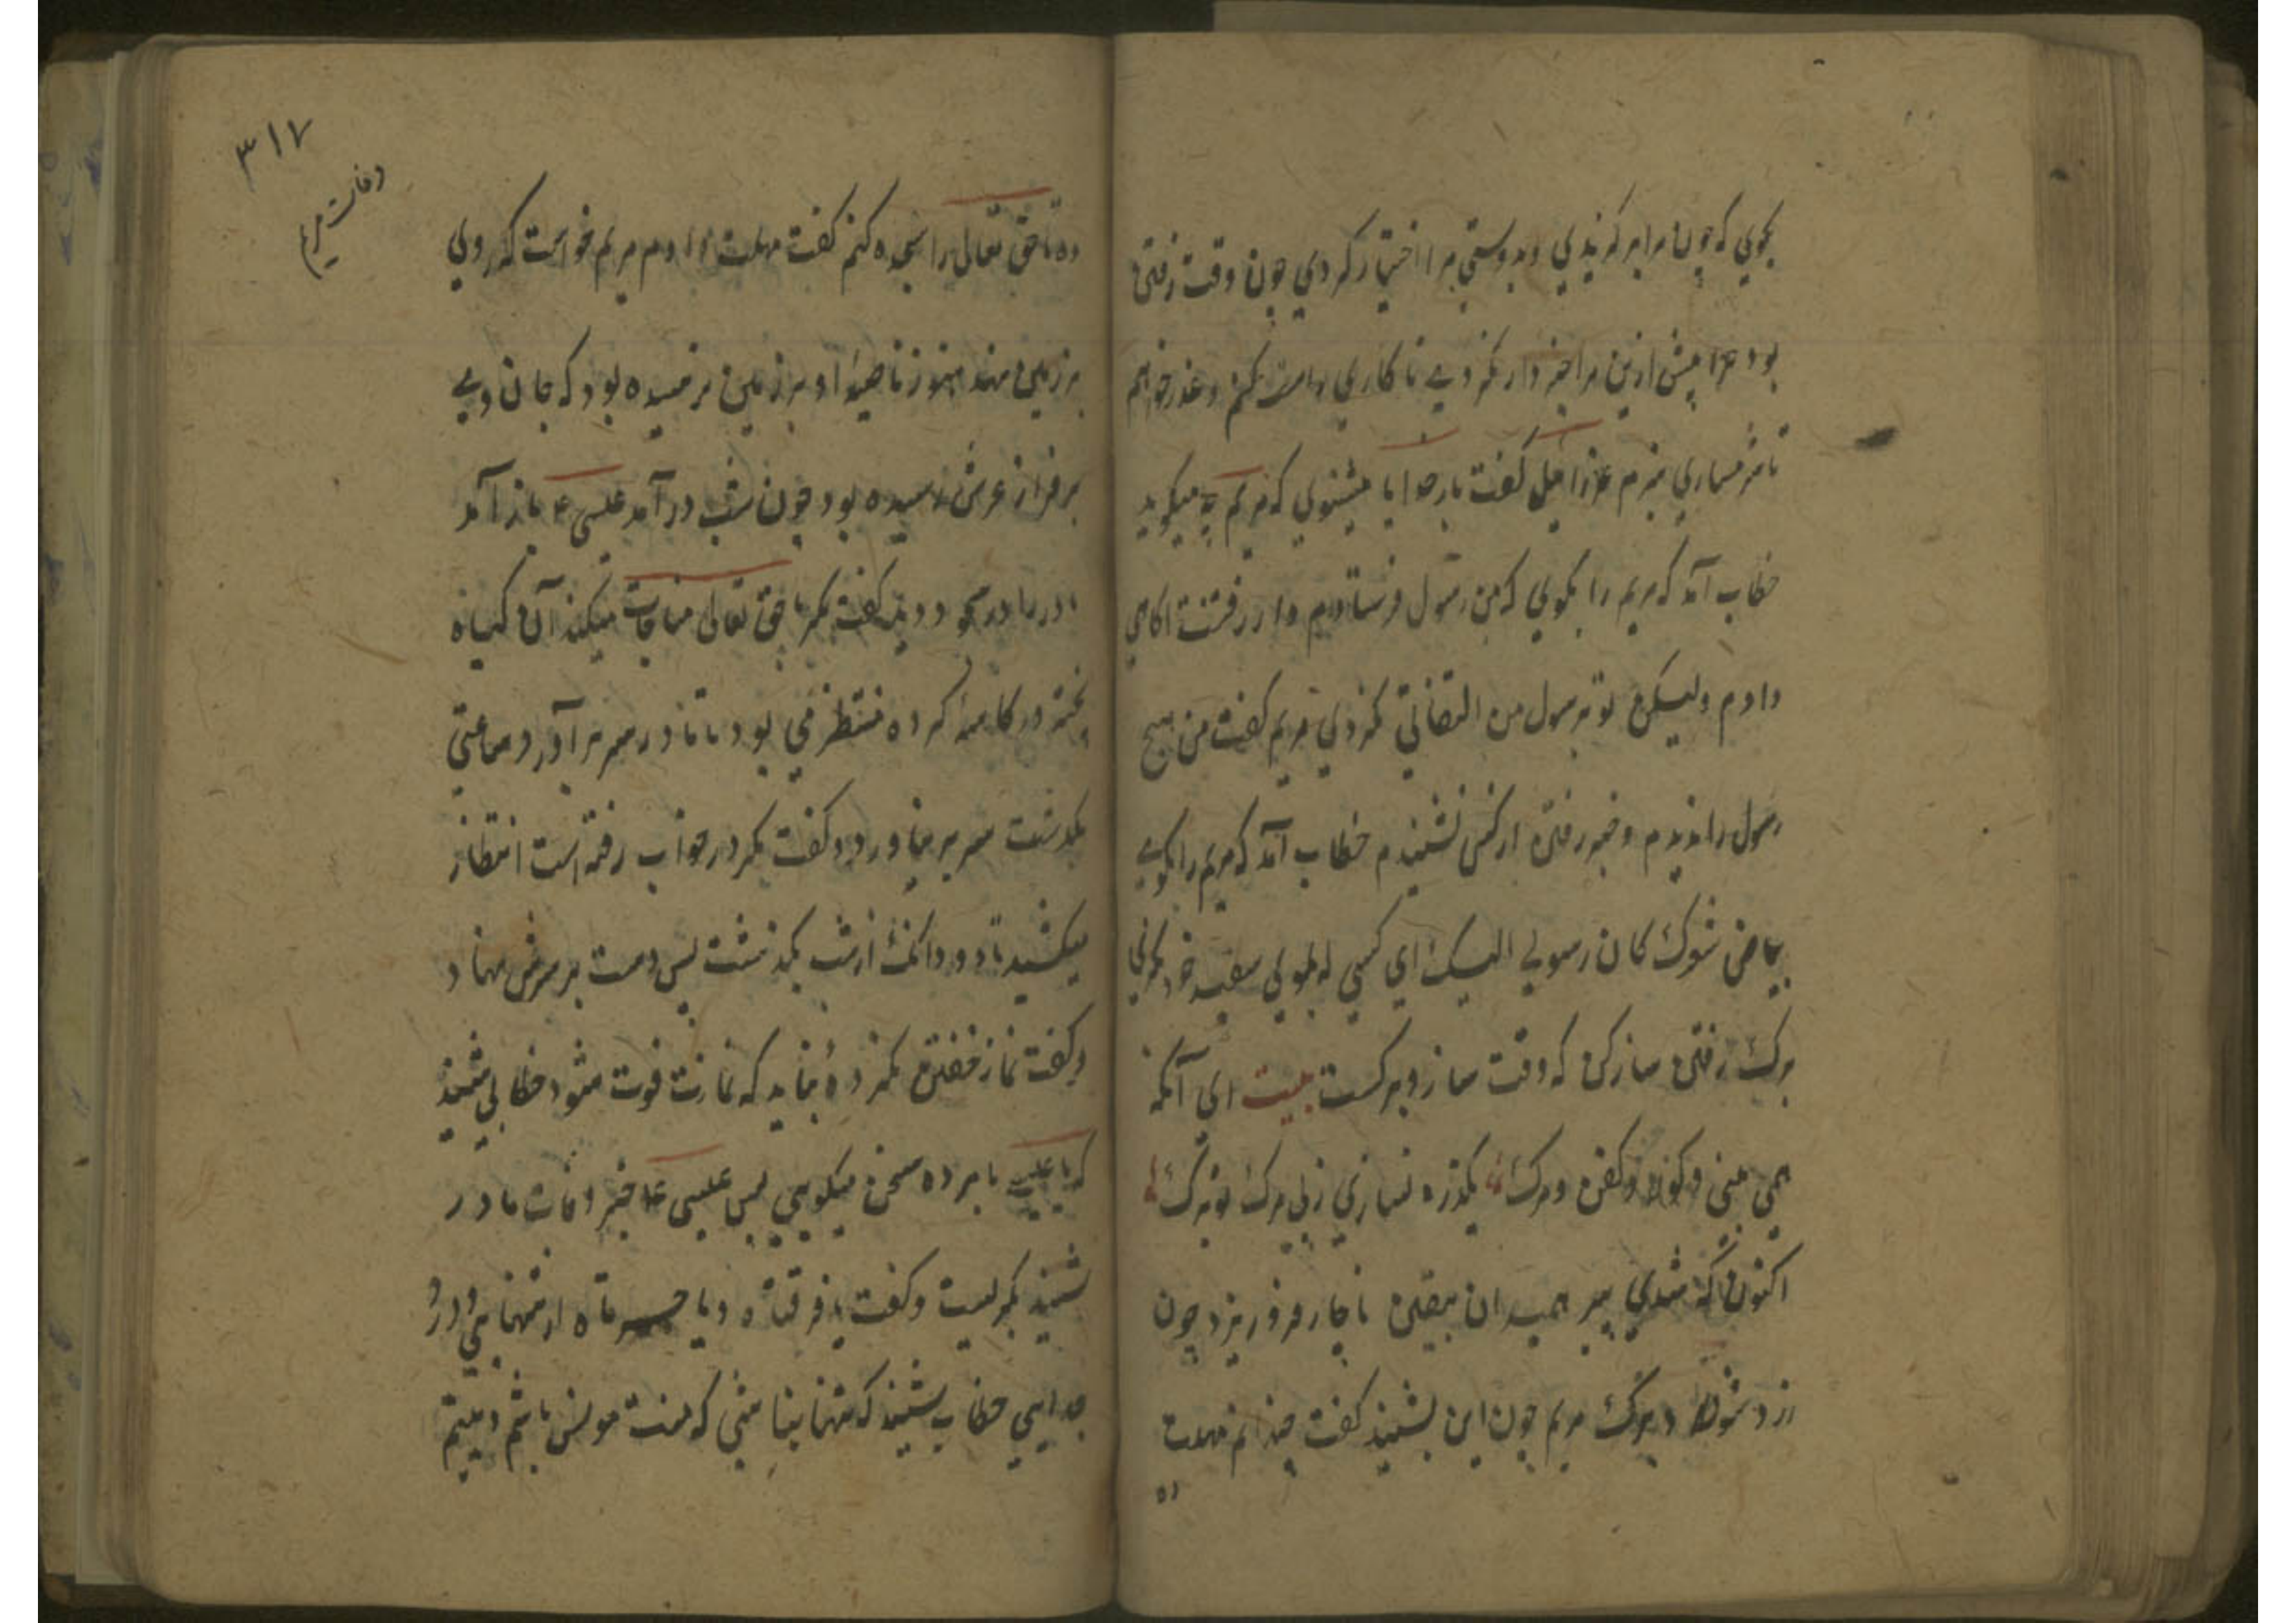 بگوی که چون مرا برگزیدی و بدوستی مرا اختیار کردی چون وقت رفتن
بود چرا پیش ازین مرا خبردار نکردی تا کاری راست کنم و عذر خواهم
تا شرمساری نبرم عزرائیل گفت بار خدایا میشنوی که مریم چه میکوید
خطاب آمد که مریم را بکوی که من رسول فرستادم و از رفتنت اکاهی
دادم ولیکن تو برسول من التفاتی نکردی مریم کفت من هیچ
رسول را ندیدم و خبر رفتن از کس نشنیدم خطاب آمد که مریم را بکوی
بیاض شعرک کان رسولی الیک ای کسی که بموی سفید خود نکرنی
برک رفتن ساز کن که وقت ساز و برکست بیت ای آنکه
همی بینی و کفن و مرک
اکنون که شدی پیر همیدان بیقین ناچار فرو ریزد چون
زرد شود برک مریم چون این بشنید کفت چندانم مهلت
ده
۳۱۷
وفات مریم
ده تا حق تعالی را سجده کنم کفت مهلت دادم مریم خواست که روی
بر زمین نهد هنوز ناصیه او بر زمین نرسیده بود که جان وی
بر فراز عرش رسیده بود چون شب درآمد عیسی ع باز آمد
مادر را در سجود دید کفت مکر با حق تعالی مناجات میکند آن کیاه
پخته در کاسه کرده منتظر می بود تا مادر سر برآورد ساعتی
بکذشت سر بر نیاورد کفت مکر در خواب رفته است انتظار
میکشید تا دو دانک از شب بکذشت پس دست بر سرش نهاد
و کفت نماز خفتن نکرده نباید که نمازت فوت شود خطابی شنید
که یا عیسی با مرده سخن میکویی پس عیسی ع خبر وفات مادر
بشنید بکریست و کفت یا فرقتاه و یا حسرتاه از تنهایی و درد
جدایی خطاب بشنید که تنها نباشی که منت مونس باشم